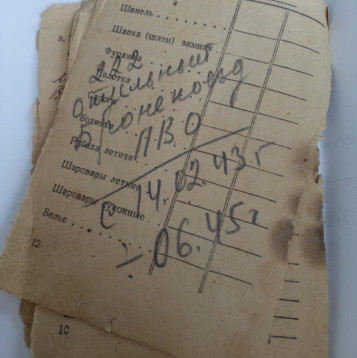 Шинель
Шапка (шлем) зимняя
Фуражка
Пилотка
222
отдельный
бронепоезд
ПВО
Ботинки
Рубаха летняя
Шаровары летние
Шаровары суконные
Белье
С 14.02.43 г
06.45 г
12
10